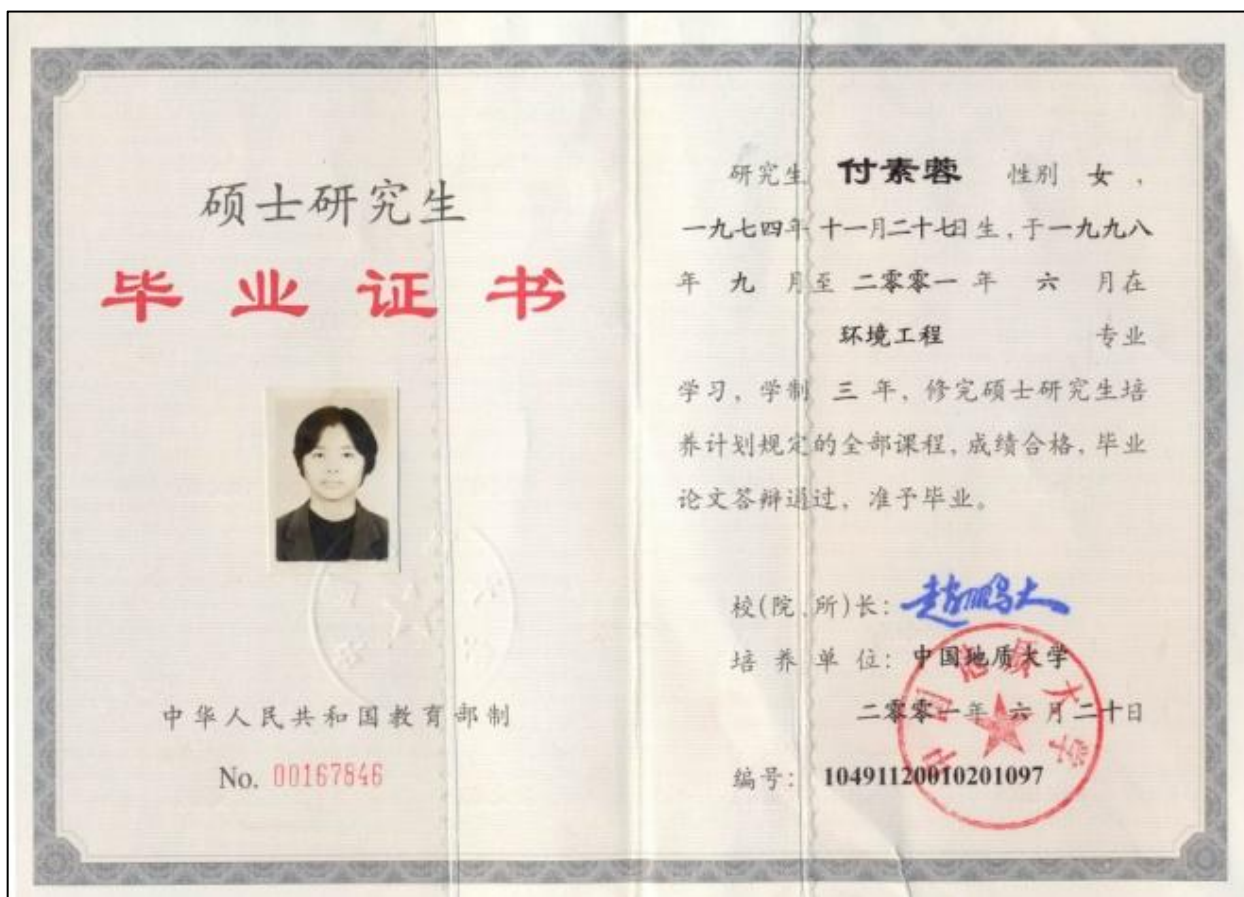 硕士研究生
毕业证书
中华人民共和国教育部制
No. 00167846
研究生 付素蓉 性别 女 ,
一九七四年 十一月二十七日生, 于一九九八
年 九 月至 二零零一 年 六 月在
环境工程 专业
学习, 学制 三 年, 修完硕士研究生培
养计划规定的全部课程, 成绩合格, 毕业
论文答辩通过, 准予毕业。
校(院、所)长: 赵鹏大
培养单位: 中国地质大学
二零零一年 六 月二十日
编号: 10491120010201097
中国地质大学